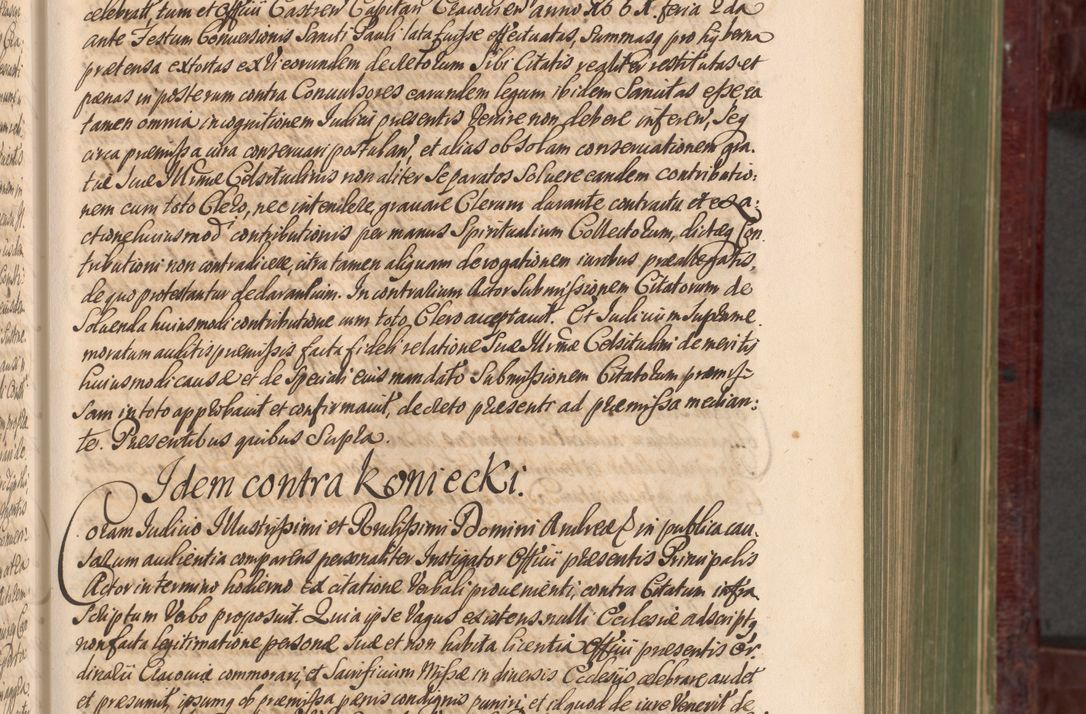 celebratt, tum et Officii Castren Capitan Cracovien anno X6 6X. feria 2da
ante Festum Conversionis Sancti Pauli lata fuisse effectuatas, Summasq pro hyberna
prætensa extortas ex vi eorundem decretorum sibi Citatis realiter restitutas et
pænas in posterum contra Convulsores earundem legum ibidem Sancitas esse ea
tamen omnia in cognitionem Iudicii presentis venire non debere inferen, Seq
circa præmissa iura conservari postulan, et alias ob solam conservationem gra
tiæ Suæ Illrmæ Celsitudinis non aliter se paratos solvere eandem contributio:
nem cum toto Clero, nec intendere, gravare Clerum durante contractu et exa:
ctione huiusmodi contributionis per manus Spiritualium Collectorum, dictæq Con
tributioni non contradicere, citra tamen aliquam derogationem iuribus præallegatis,
de quo protestantur et declarantium. In contrarium Actor Submissionem Citatorum de
Solvenda huiusmodi contributione cum toto Clero acceptavit. Et Iudicium Supreme
moratum auditis premissis facta fideli relatione Suæ Illrmæ Celsitudini de meritis
huiusmodi causæ et de Speciali eius mandato Submissionem Citatorum præmis:
sam in toto approbavit et confirmavit, decreto præsenti ad præmissa median:
te. Presentibus quibus Supra.
Idem contra Koniecki.
Coram Iudicio Illustrissimi et Rndissimi Domini Andreæ in publica cau
sarum audientia comparens personaliter Instigator Officii præsentis Principalis
Actor in termino hodierno ex citatione verbali provenienti, contra Citatum infra
Scriptum Verbo proposuit. Quia ipse Vagus existens nulli Ecclesiæ adscriptq
non facta legitimatione personæ Suæ et non habita licentia Officii præsentis Or
dinarii Cracoviæ commorari, et Sacrificium Missæ in diversis Ecclesijs celebrare audet
et præsumit, ipsumq ob præmissa pænis condignis puniri, et id quod de iure Venerit de